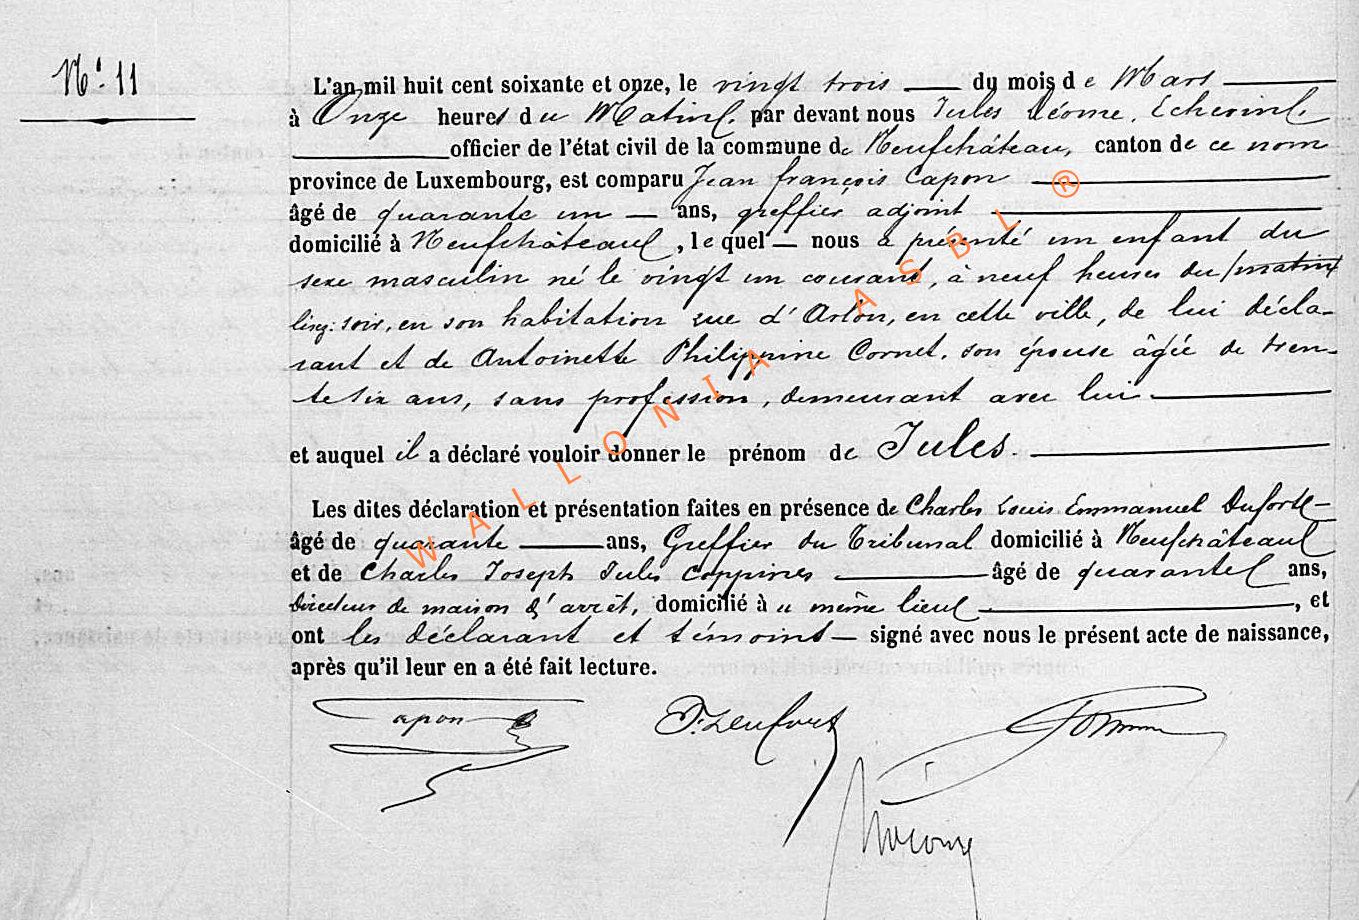 N.º 11
L'an mil huit cent soixante et onze, le vingt trois du mois de Mars
à Onze heures du Matin, par devant nous Jules Déome, Echevin,
officier de l'état civil de la commune de Neufchâteau, canton de ce nom
province de Luxembourg, est comparu Jean françois Capon
âgé de quarante un ans, greffier adjoint
domicilié à Neufchâteau, lequel nous a présenté un enfant du
sexe masculin né le vingt un courant, à neuf heures du matin
soir, en son habitation rue d'Arlon, en cette ville, de lui décla-
rant et de Antoinette Philippine Cornet, son épouse âgée de tren-
te six ans, sans profession, demeurant avec lui.
et auquel il a déclaré vouloir donner le prénom de Jules.
Les dites déclaration et présentation faites en présence de Charles Louis Emmanuel
âgé de quarante ans, Greffier du Tribunal domicilié à Neufchâteau
et de Charles Joseph Jules Coppines âgé de quarante ans,
Directeur de maison d'arrêt, domicilié à u même lieu, et
ont les déclarant et témoins signé avec nous le présent acte de naissance,
après qu'il leur en a été fait lecture.
Capon
WALLONIA ASBL ®